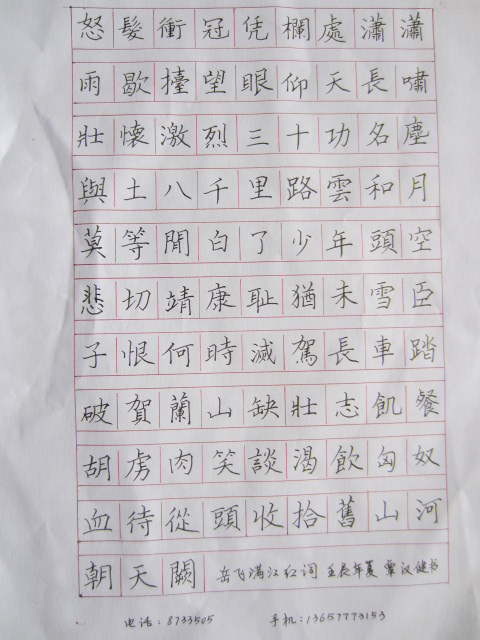 怒髮衝冠凭欄處瀟瀟
雨歇擡望眼仰天長嘯
壯懷激烈三十功名塵
與土八千里路雲和月
莫等閒白了少年頭空
悲切靖康耻猶未雪臣
子恨何時滅駕長車踏
破賀蘭山缺壯志飢餐
胡虜肉笑談渴飲匈奴
血待從頭收拾舊山河
朝天闕 岳飞满江红词 壬辰年夏 覃汉健书
电话：8733505 手机：13657773153